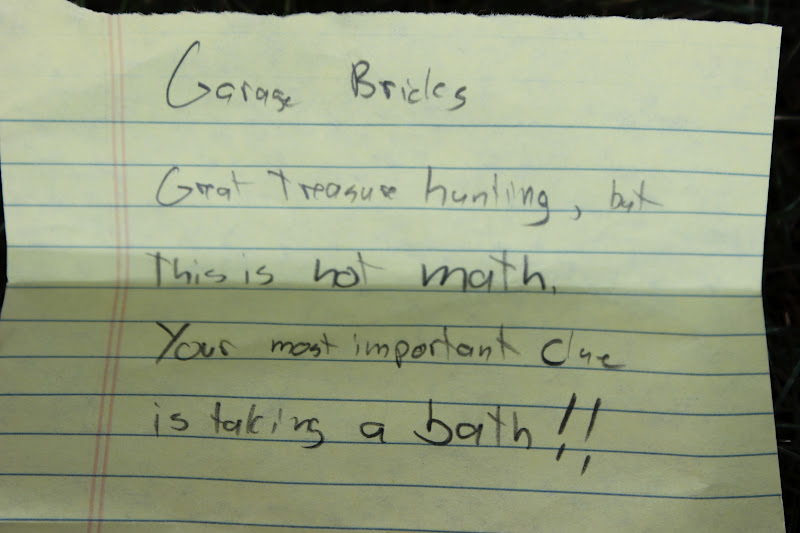 Garage Bricks
Great Treasure hunting, but
This is not math.
Your most important Clue
is taking a bath!!